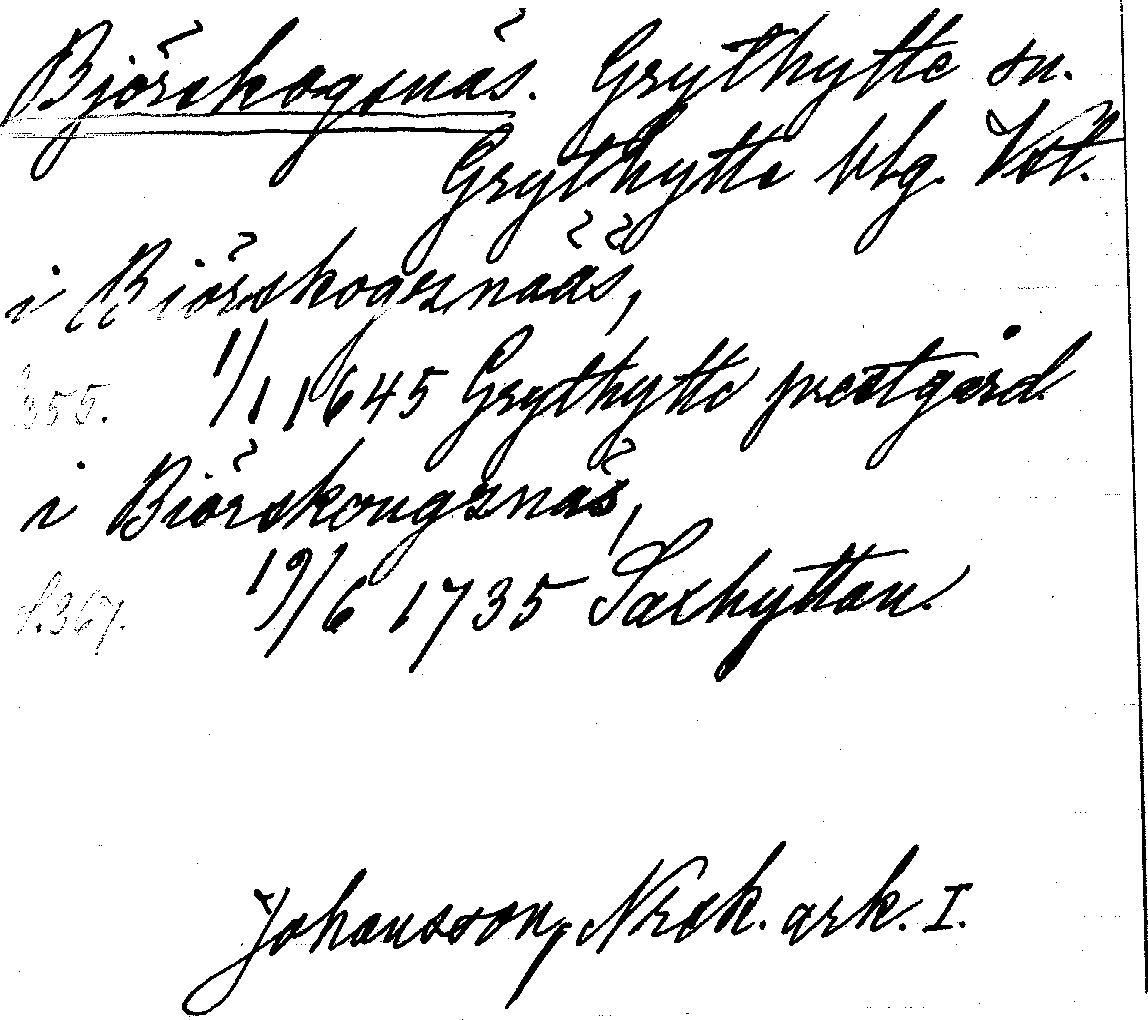 Björskogsnäs. Grythytte sn.
Grythytte blg. Vstm.
i Biörskogsnääs,
355. 1/1 1645 Grythytte prestgård
i Biörskougsnäs,
s.367. 19/6 1735 Saxhyttan.
Johansson, Norsk. ark. I.